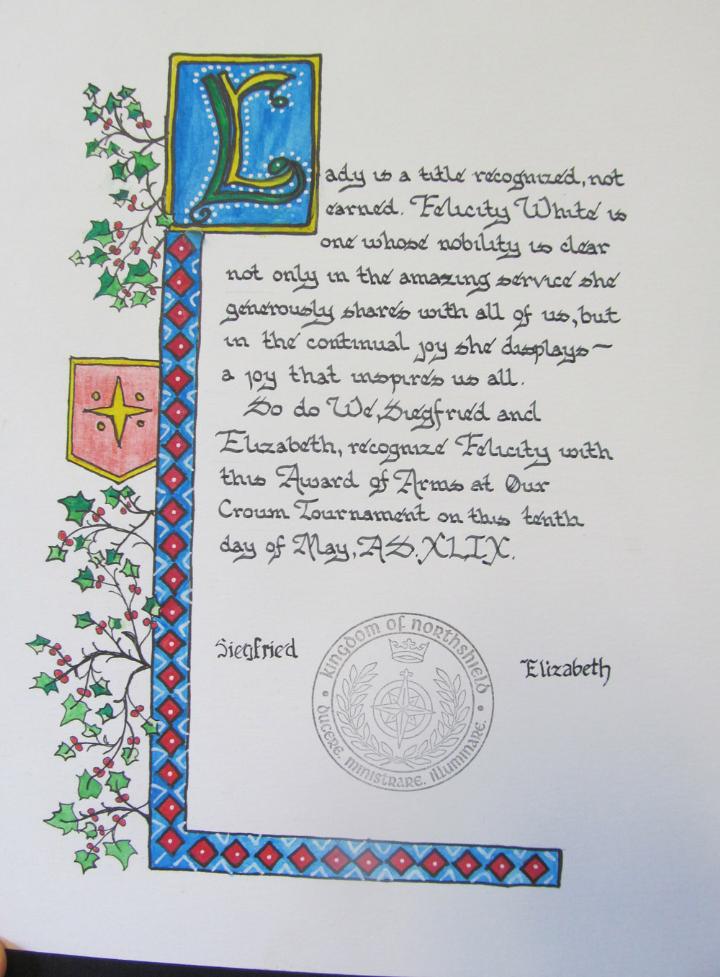 Lady is a title recognized, not
earned. Felicity White is
one whose nobility is clear
not only in the amazing service she
generously shares with all of us, but
in the continual joy she displays~
a joy that inspires us all.
So do We, Siegfried and
Elizabeth, recognize Felicity with
this Award of Arms at Our
Crown Tournament on this tenth
day of May, AS. XLIX.
Siegfried
kingdom of northshield
ducere. ministrare. illuminare.
Elizabeth